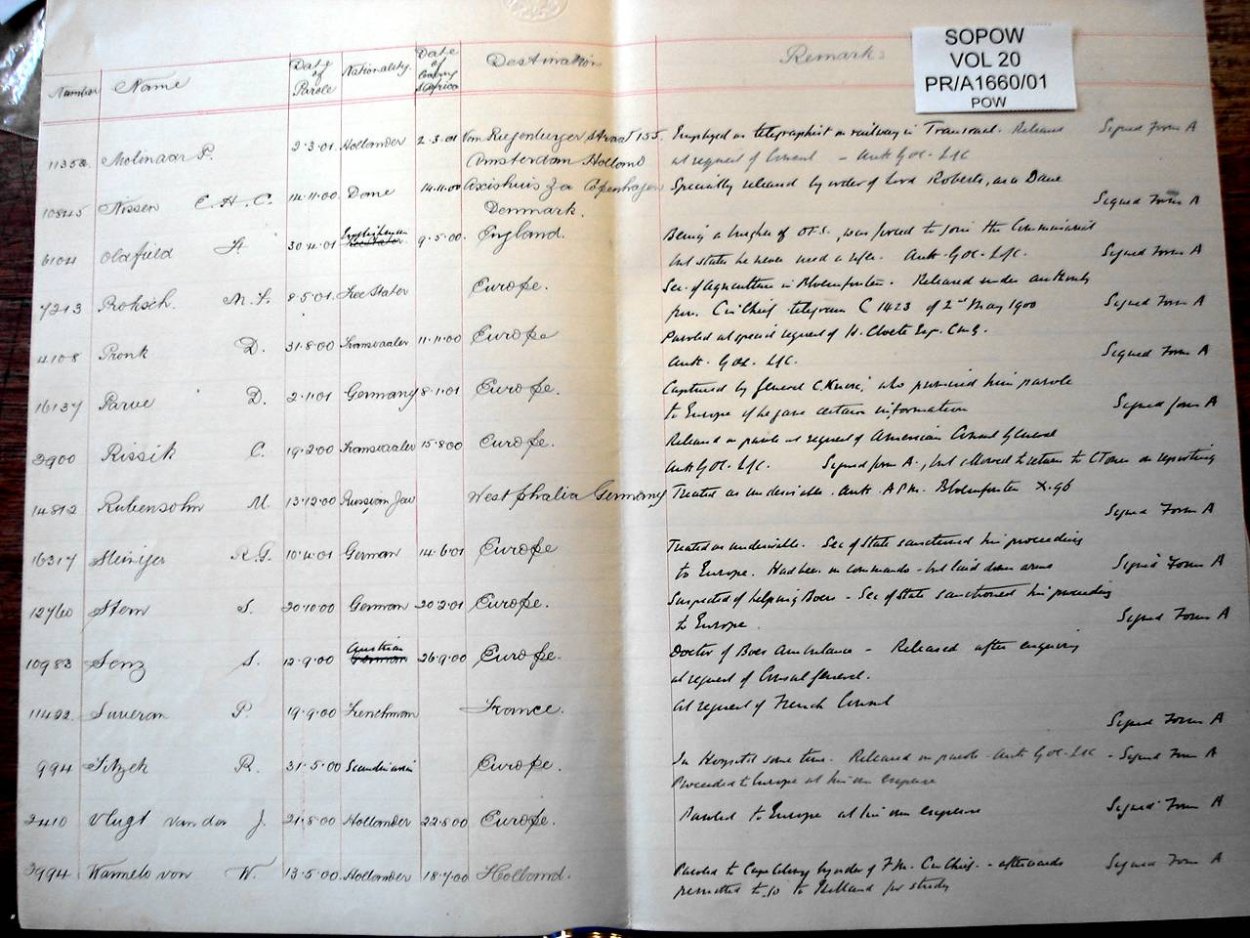 SOPOW
VOL 20
PR/A1660/01
POW
Number Name Date of Parole Nationality Date of leaving S Africa Destination Remarks
11353 Molinaar P. 2.3.01 Hollander 2.3.01 Von Riegenburger straat 155 Employed as telegraphist on railway in Transvaal. Released Signed Form A
Amsterdam Holland at request of Consul - Auth GOC. L of C
10845 Nissen C.H.C. 14.11.00 Dane 14.11.00 Copenhagen Specially released by order of Lord Roberts, as a Dane
Denmark. Signed Form A
6104 Oldfield 30.4.01 Englishman 9.5.00. England. Being a burgher of O.F.S., was forced to join the Commissariat
but states he never used a rifle. Auth GOC. LofC. Signed Form A
7213 Proksch. M.F. 8.5.01. Free Stater Europe. Sec. of Agriculture in Bloemfontein. Released under authority
from C in Chief telegram C 1423 of 2nd May 1900 Signed Form A
4108 Pronk D. 31.8.00 Transvaaler 11.11.00 Europe Paroled at special request of H. Cloete Esq. C.M.G.
Auth. GOC. LfC. Signed Form A
16137 Parve D. 2.1.01 Germany 8.1.01 Europe. Captured by General C Knox, who promised him parole
to Europe if he gave certain information Signed form A
3900 Rissik C. 19.2.00 Transvaaler 15.8.00 Europe. Released on parole at request of American Consul General
Auth GOC. LfC. Signed form A., but allowed to return to C Town on reporting
14812 Rubensohn M. 13.12.00 Russian Jew Westphalia Germany Treated as undesirable. Auth. A.P.M. Bloemfontein X.96
Signed Form A
16317 Steinijer R.G. 10.4.01 German 14.6.01 Europe Treated as undesirable. Sec of State sanctioned his proceeding
to Europe. Had been on commando - but laid down arms Signed Form A
12760 Stern S. 20.10.00 German 20.2.01 Europe. Suspected of helping Boers - Sec of State sanctioned his proceeding
to Europe. Signed Form A
10983 Sonz S. 12.9.00 Austrian 26.9.00 Europe. Doctor of Boer Ambulance - Released after enquiry
at request of Consul General.
11422 Suveran P. 19.9.00 Frenchman France. At request of French Consul
Signed Form A
994 Sitzek R. 31.5.00 Scandinavian Europe. In Hospital some time. Released on parole - Auth GOC. LfC - Signed Form A
Proceeded to Europe at his own expense
2410 Vlugt van der J. 21.8.00 Hollander 22.8.00 Europe. Paroled to Europe at his own expense Signed Form A
3994 Warmelo von W. 13.5.00 Hollander 18.7.00 Holland. Paroled to Cape Colony by order of F.M. C in Chief. - afterwards Signed Form A
permitted to go to Holland for study